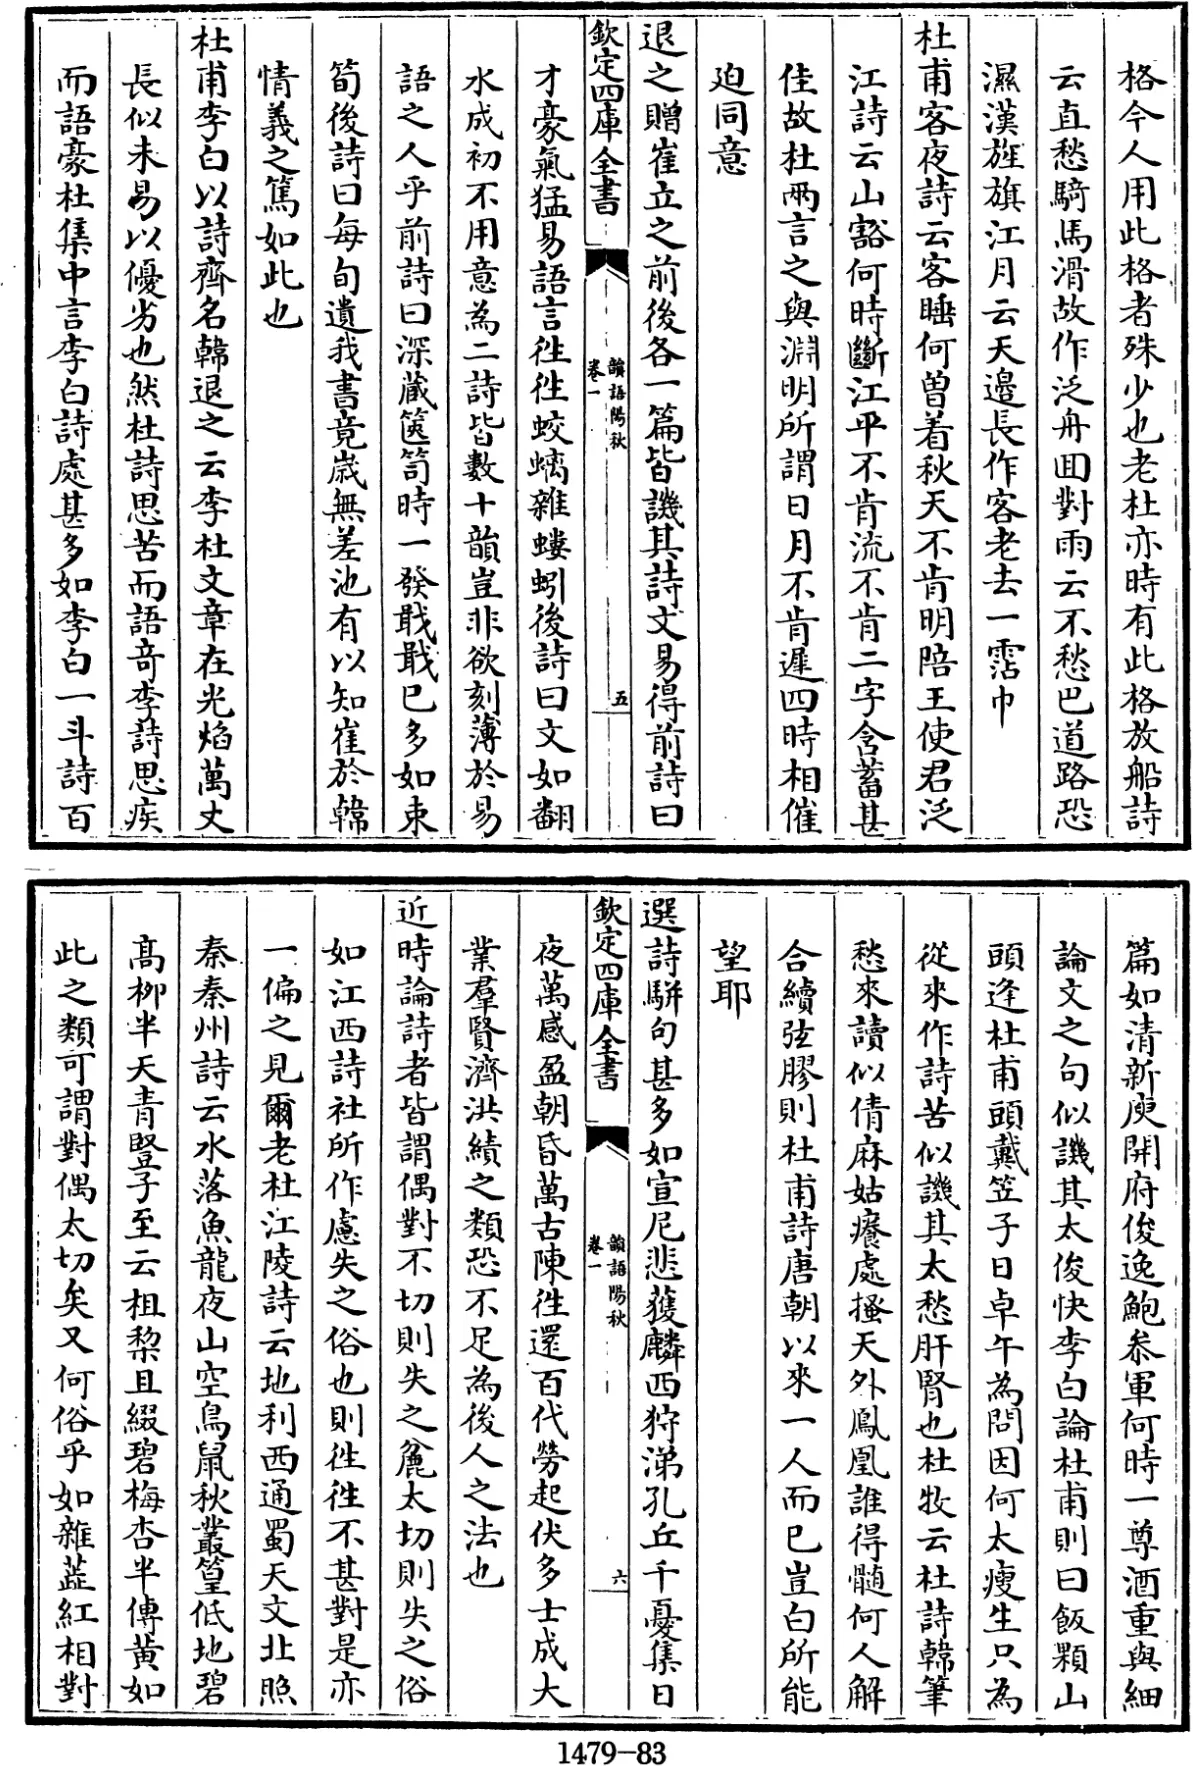 格今人用此格者殊少也老杜亦時有此格放船詩
云直愁騎馬滑故作泛舟囬對雨云不愁巴道路恐
濕漢旌旗江月云天邉長作客老去一霑巾
杜甫客夜詩云客睡何曽着秋天不肯明陪王使君泛
江詩云山豁何時斷江平不肯流不肯二字含蓄甚
佳故杜兩言之與淵明所謂日月不肯遲四時相催
迫同意
退之贈崔立之前後各一篇皆譏其詩文易得前詩曰
欽定四庫全書
韻語陽秋
卷一
五
才豪氣猛易語言徃徃蛟螭雜螻蚓後詩曰文如翻
水成初不用意為二詩皆數十韻豈非欲刻薄於易
語之人乎前詩曰深藏篋笥時一發戢戢已多如束
筍後詩曰每旬遺我書竟歳無差池有以知崔於韓
情義之篤如此也
杜甫李白以詩齊名韓退之云李杜文章在光焰萬丈
長似未易以優劣也然杜詩思苦而語竒李詩思疾
而語豪杜集中言李白詩處甚多如李白一斗詩百
篇如清新庾開府俊逸鮑叅軍何時一尊酒重與細
論文之句似譏其太俊快李白論杜甫則曰飯顆山
頭逢杜甫頭戴笠子日卓午為問因何太瘦生只為
從來作詩苦似譏其太愁肝腎也杜牧云杜詩韓筆
愁來讀似倩麻姑癢處搔天外鳳凰誰得髓何人解
合續弦膠則杜甫詩唐朝以來一人而已豈白所能
望耶
選詩駢句甚多如宣尼悲獲麟西狩涕孔丘千憂集日
欽定四庫全書
韻語陽秋
卷一
六
夜萬感盈朝昏萬古陳徃還百代勞起伏多士成大
業羣賢濟洪績之類恐不足為後人之法也
近時論詩者皆謂偶對不切則失之麄太切則失之俗
如江西詩社所作慮失之俗也則徃徃不甚對是亦
一偏之見爾老杜江陵詩云地利西通蜀天文北照
秦秦州詩云水落魚龍夜山空鳥鼠秋叢篁低地碧
髙栁半天青豎子至云柤棃且綴碧梅杏半傳黄如
此之類可謂對偶太切矣又何俗乎如雜蕋紅相對
1479-83